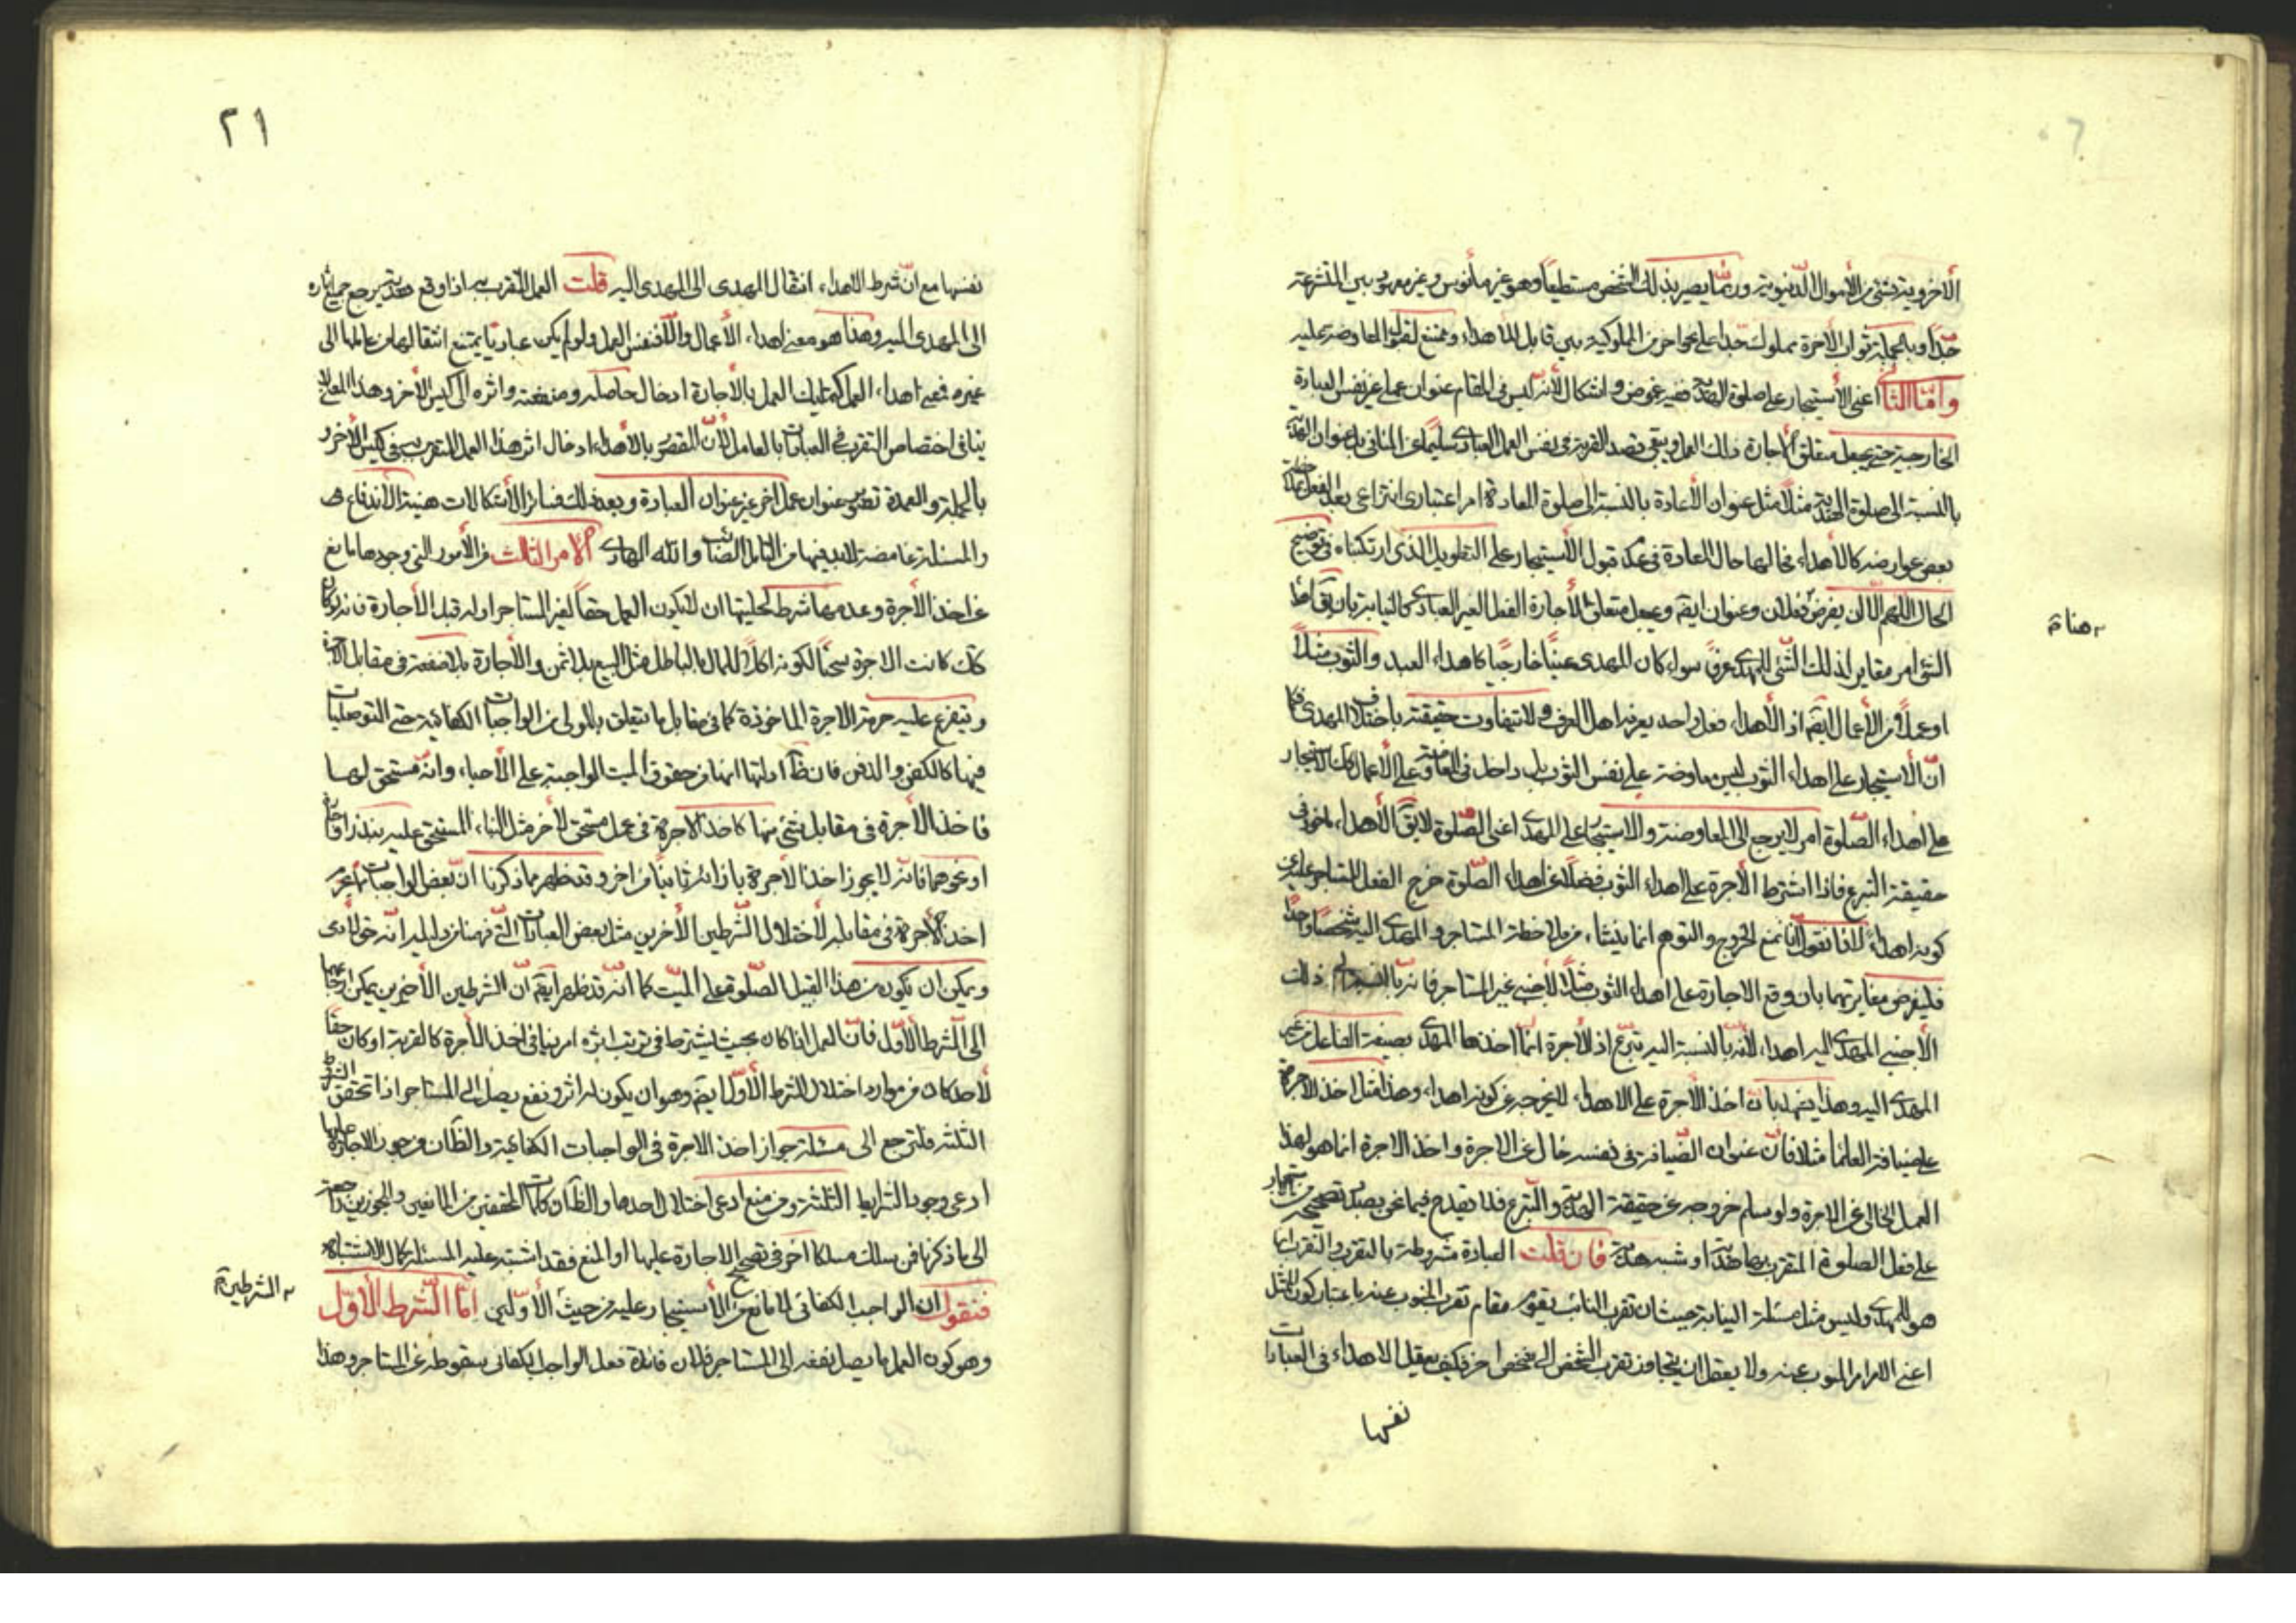 الأخروية بشئ من الأموال الدنيوية وربما يصير بذلك الشخص مستطيعاً وهو غير مأنوس وغير معهود بين المتشرعة
جدّا وبالجملة ثواب الأخرة مملوك جدا على نحو اخر من الملوكية بين قابل للأهداء وممتنع لقبول المعاوضة عليه
وامّا الثانى اعنى الأستيجار على صلوة الهدية ففيه غموض واشكال لأنه ليس فى المقام عنوان عمل غير نفس العبادة
الخارجية حتى يجعل متعلق الأجارة ذلك العمل ويبقى قصد القربة فى نفس العمل العبادى سليما عن المنافى بل عنوان الهدية
بالنسبة الى صلوة الهدية مثلا مثل عنوان الأعادة بالنسبة الى صلوة المعادة امر اعتبارى انتزاعى بعد الفعل
بعض عوارضه كالأهداء فحالها حال المعادة فى عدم قبول الأستيجار على التطويل الذى ارتكبناه فى توضيح
الحال اللهم الا ان يفرض فعلان وعنوان ايضا ويجعل متعلق الأجارة الفعل الغير العبادى كالنيابة بان يقال
هناة
الشئ امر مغاير لذلك الشئ المهدى عرفا سواء كان المهدى عينا خارجيا كاهداء العبد والثوب مثلاً
او عملا من الأعمال ايضا اذ الأهداء فعل واحد يعرفه اهل العرف ولا تتفاوت حقيقته باختلاف المهدى فكما
انّ الأستيجار على اهداء الثوب ليس معاوضة على نفس الثوب بل داخل فى المعاوضة على الأعمال كذلك الأستيجار
على اهداء الصلوة امر لا يرجع الى المعاوضة والاستيجار على المهدى اعنى الصلوة لا يقال الأهداء ماخوذ فى
حقيقته التبرع فاذا اشترط الأجرة على اهداء الثوب فضلا عن اهداء الصلوة خرج الفعل المستاجر عليه عن
كونه اهداء لانا نقول انا نمنع الخروج والتوهم انما ينشاء من ملاحظة المستاجر والمهدى اليه شخصا واحدا
فليفرض مغايرتهما بان وقع الاجارة على اهداء الثوب مثلا لأجنبى غير المستاجر فانه بالنسبة الى ذلك
الأجنبى المهدى اليه اهداء لأنه بالنسبة اليه تبرع اذ الأجرة انّما اخذها المهدى بصفة الفاعل من غير
المهدى اليه وهذا يشهد بان اخذ الأجرة على الاهداء لا يخرجه عن كونه اهداء وهذا مثل اخذ الاجرة
على ضيافة العلماء مثلا فانّ عنوان الضيافة فى نفسه خال عن الاجرة واخذ الاجرة انما هو لهذا
العمل الخالى عن الاجرة ولو سلم خروجه عن حقيقة الهدية والتبرع فلا يقدح فيما نحن بصدد تصحيحه من استيجار
على فعل الصلوة المتقرب بها هدية او شبه هدية فان قلت العبادة مشروطة بالتقرب والتقرب انما
هو للمهدى وليس مثل مسئلة النيابة حيث ان تقرب النائب يقوم مقام تقرب المنوب عنه باعتبار كون المتمثل
اعنى الأمر امر المنوب عنه ولا يعقل ان يتجاوز تقرب الشخص الى شخص اخر فكيف يعقل الاهداء فى العبادات
نفسها
٢١
نفسها مع انّ شرط الاهداء انتقال المهدى الى المهدى اليه قلت العمل المتقرب به اذا وقع هدية يرجع جميع اثاره
الى المهدى اليه وهذا هو معنى اهداء الأعمال والّا فنفس العمل ولو لم يكن عباديا يمتنع انتقالها من عاملها الى
غيره فمعنى اهداء العمل كتمليك العمل بالأجارة ادخال حاصله ومنفعته واثره الى كيس الأخر وهذا المعنى لا
ينافى اختصاص التقرب فى العبادات بالعامل لأنّ المقصود بالأهداء ادخال اثر هذا العمل المتقرب به فى كيس الأخر
بالجملة والعمدة تصور عنوان عمل اخر غير عنوان العبادة وبعد ذلك فسائر الأشكالات هينة الأندفاع
والمسئلة غامضة لابد فيها من التامل الصائب والله الهادى الامر الثالث من الأمور التى وجودها مانع
عن اخذ الأجرة وعدمها شرط لحليتها ان لا يكون العمل حقاً لغير المستاجر اوله قبل الأجارة فانه لو كان
كك كانت الاجرة سحتاً لكونه اكلاً للمال بالباطل مثل البيع بلا ثمن والأجارة بلا منفعة فى مقابل الأجرة
ويتفرع عليه حرمة الاجرة الماخوذة كما فى مقابل ما يتعلق بالمولى من الواجبات الكفائية حتى التوصليات
فيها كالكفن والدفن فان ظ ادلتها انها من حقوق الميت الواجبة على الأحياء وانّه مستحق لها
فاخذ الأجرة فى مقابل شئ منها كاخذ الاجرة فى عمل مستحق لأخر مثل البناء المستحق عليه بنذر
او نحوهما فانه لا يجوز اخذ الأجرة بازائه ثانياً من اخر وقد ظهر مما ذكرنا ان بعض الواجبات مما يحرم
اخذ الأجرة فى مقابله لأختلال الشرطين الأخرين مثل بعض العبادات التى فهمنا من دليله انّه حق لأدمى
ويمكن ان يكون من هذا القبيل الصّلوة على الميّت كما انّه قد ظهر ايضا انّ الشرطين الأخيرين يمكن ارجاعهما
الى الشّرط الأوّل فانّ العمل اذا كان بحيث يشترط فى ترتب اثره امر ينافى اخذ الأجرة كالقربة او كان حقاً
لأحد كان من موارد اختلال الشرط الأوّل ايضا وهو ان يكون له اثر ونفع يصل الى المستاجر اذا تحقق الشروط
الثلثة فلنرجع الى مسئلة جواز اخذ الاجرة فى الواجبات الكفائية والظان من جوز الاجارة عليها
ادعى وجود الشرايط الثلثة ومن منع ادعى اختلال احدها والظ ان كلمات المحققين من المانعين والمجوزين راجعة
الى ما ذكرنا فمن سلك مسلكا اخر فى تصحيح الاجارة عليها او المنع فقد اشتبه عليه المسئلة كمال الاشتباه
فنقول ان الواجب الكفائى لا مانع عن الأستيجار عليه من حيث الأوّلين امّا الشّرط الأوّل
الشرطين
وهو كون العمل ما يصل نفعه الى المستاجر فلان فائدة فعل الواجب الكفائى سقوطه عن المستاجر وهذا